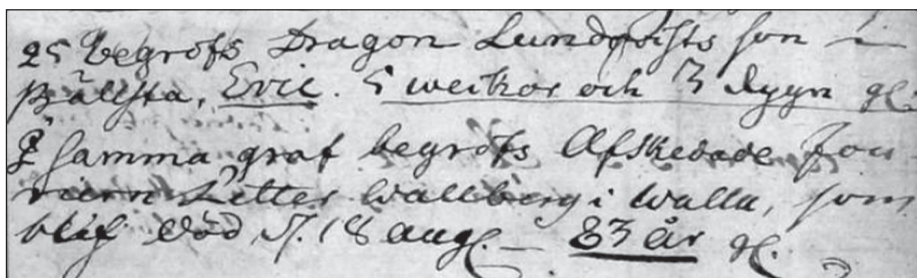 25 begrofs Dragon Lundqvists son i
Pällsta, Eric. 5 weikor och 3 dygn gl.
I samma graf begrofs Afskedade Fou
riern Petter Wallberg i Walla, som
blef död d. 18 aug. – 83 år gl.